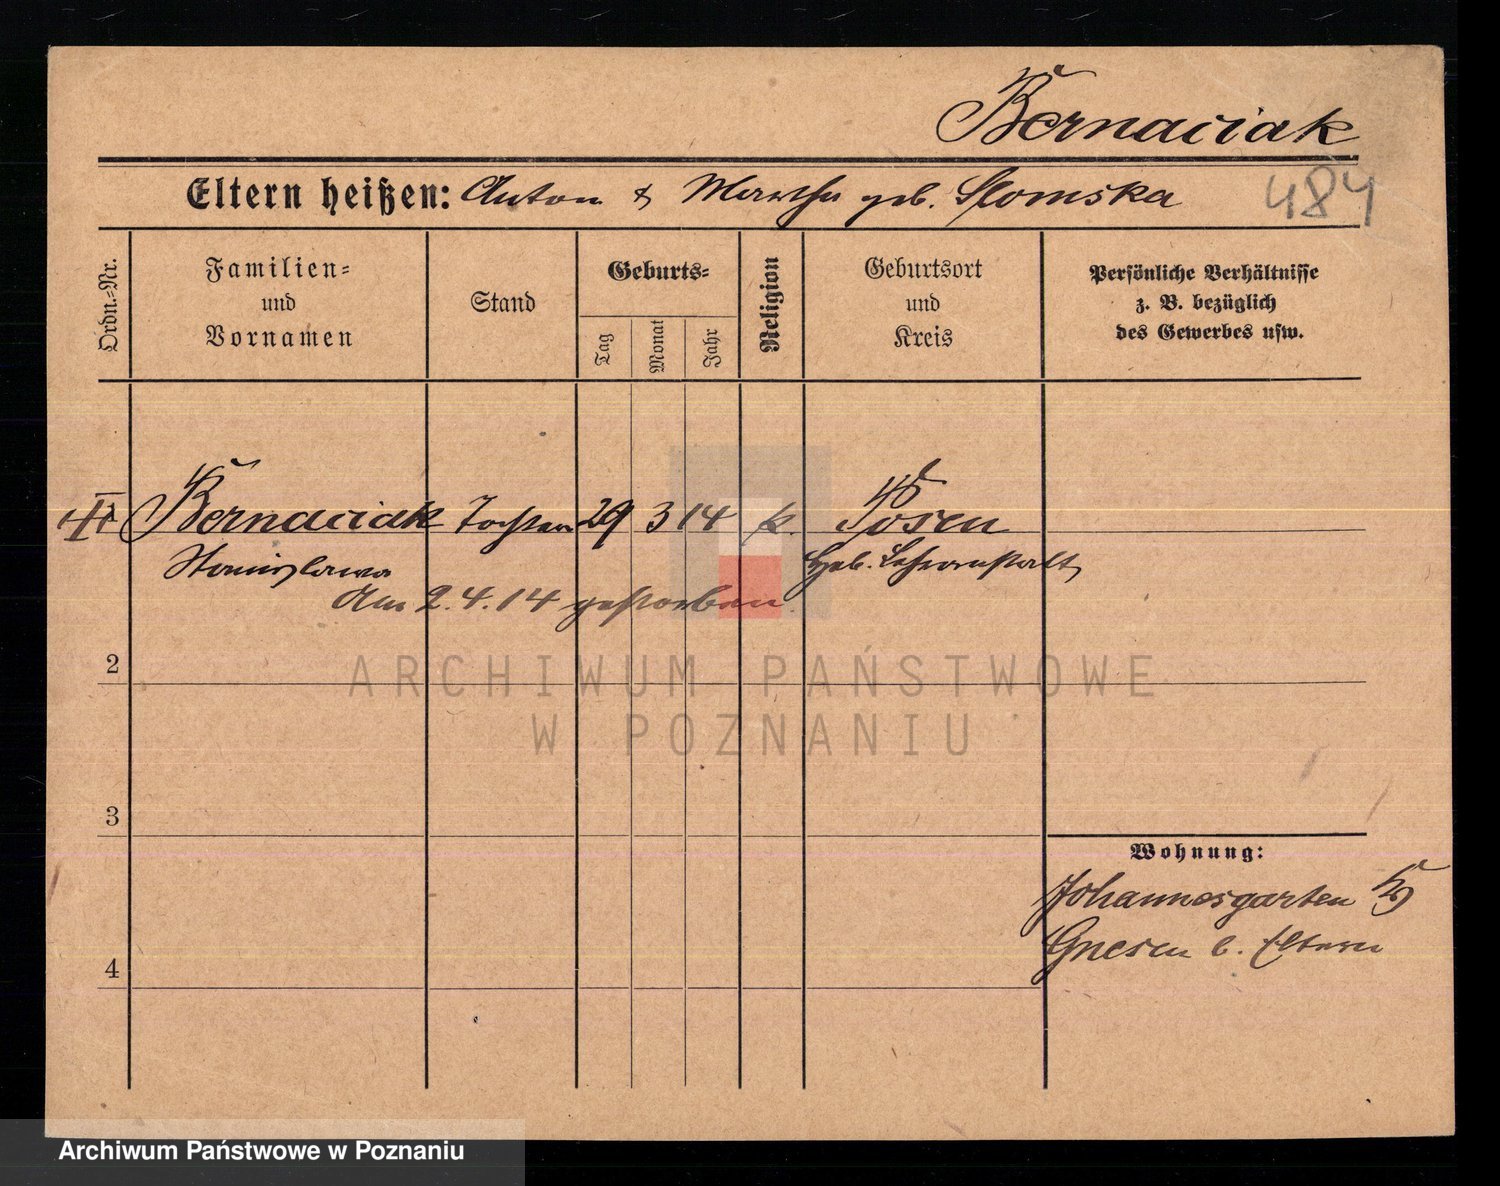 Bernaciak
Eltern heißen: Anton & Martha geb. Slomska
484
Ordn.-Nr.
Familien-
und
Vornamen
Stand
Geburts-
Tag
Monat
Jahr
Religion
Geburtsort
und
Kreis
Persönliche Verhältnisse
z. B. bezüglich
des Gewerbes usw.
Bernaciak Tochter 29 3 14 k. Posen
Stanislawa Heb. Lehranstalt
Am 2.4.14 gestorben
2
3
4
Wohnung:
Johannesgarten
Gnesen b. Eltern
ARCHIWUM PAŃSTWOWE
W POZNANIU
Archiwum Państwowe w Poznaniu